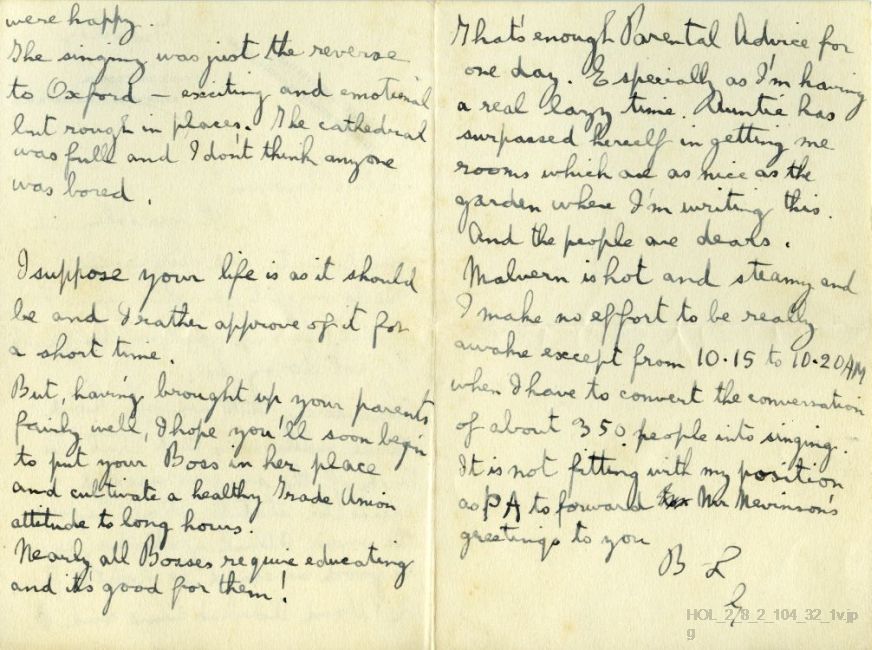 were happy.
The singing was just the reverse
to Oxford – exciting and emotional
but rough in places. The cathedral
was full and I don't think anyone
was bored.
I suppose your life is as it should
be and I rather approve of it for
a short time.
But, having brought up your parents
fairly well, I hope you'll soon begin
to put your Boss in her place
and cultivate a healthy Trade Union
attitude to long hours.
Nearly all Bosses require educating
and it's good for them!
That's enough Parental Advice for
one day. Especially as I'm having
a real lazy time. Auntie has
surpassed herself in getting me
rooms which are as nice as the
garden where I'm writing this.
And the people are dears.
Malvern is hot and steamy and
I make no effort to be really
awake except from 10.15 to 10.20 AM
when I have to convert the conversation
of about 350 people into singing.
It is not fitting with my position
as PA to forward Mr Nevinson's
greetings to you
HOL_2_8_2_104_32_1v.jp
g